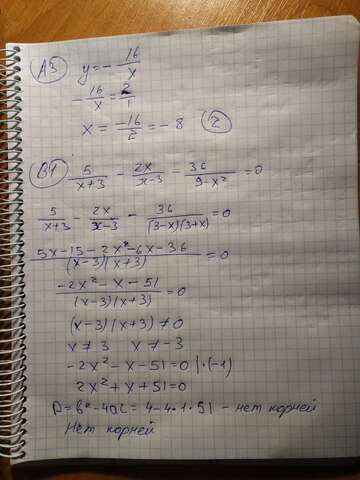 А3 y = - 16/x
- 16/x = 2/1
x = -16/2 = -8 2
В1 5/x+3 - 2x/x-3 - 36/9-x² = 0
5/x+3 - 2x/x-3 - 36/(3-x)(3+x) = 0
5x-15-2x²-6x-36/(x-3)(x+3) = 0
-2x²-x-51/(x-3)(x+3) = 0
(x-3)(x+3) ≠ 0
x ≠ 3 x ≠ -3
-2x²-x-51=0 |·(-1)
2x²+x+51=0
D = b²-4ac = 4-4·1·51 - нет корней
Нет корней